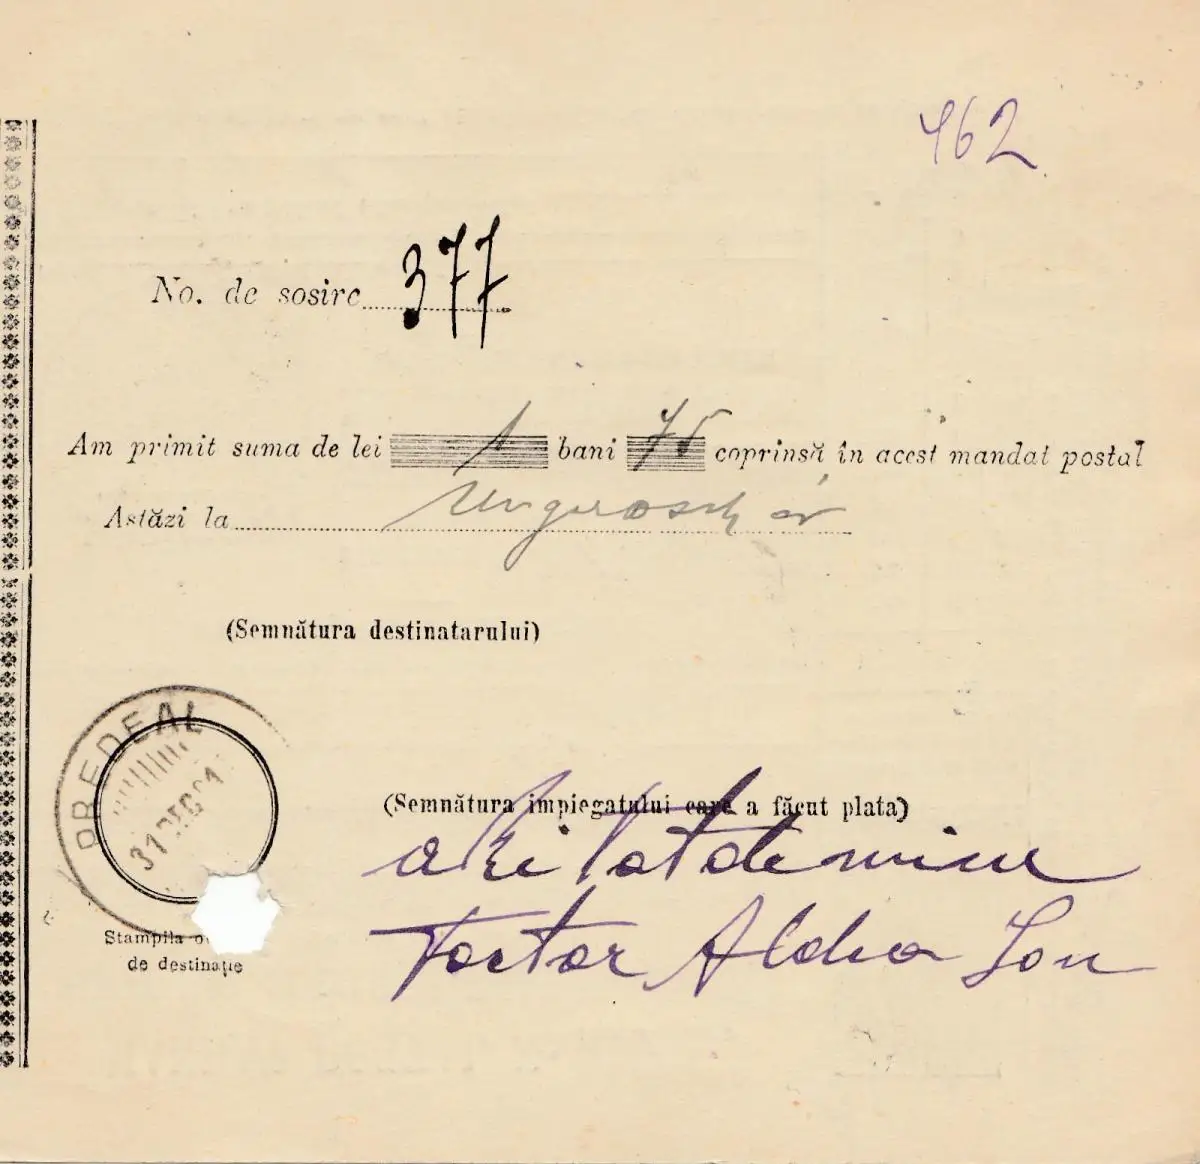 462
No. de sosire 377
Am primit suma de lei 1 bani 75 coprinsă în acest mandat postal
Astăzi la
(Semnătura destinatarului)
PREDEAL
31 DEC 91
(Semnătura impiegatului care a făcut plata)
achitat de mine
Factor Aldea Ion
Stampila
de destinație